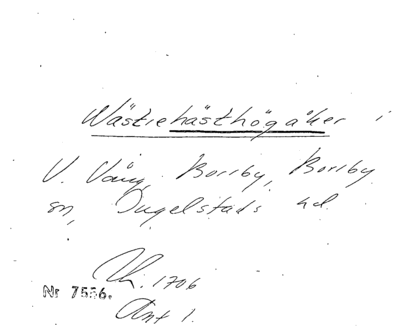 Wästrehästhögåker i
V. Vång, Borrby, Borrby
sn, Ingelstads hd
1706
Nr 7556.
Ant 1.